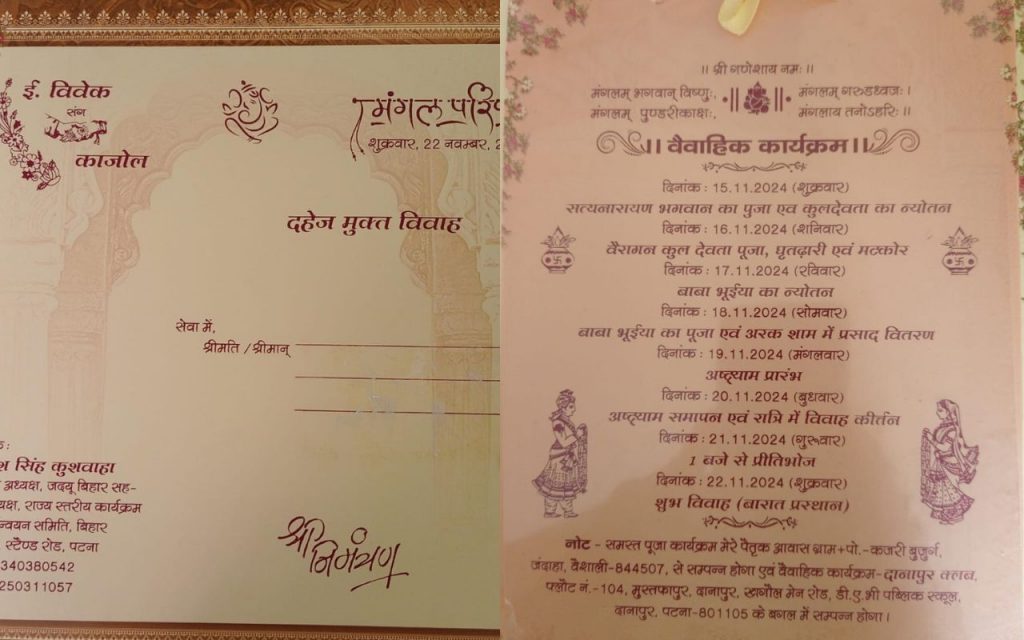 ई. विवेक
संग
काजोल
मंगल
शुक्रवार, 22 नवम्बर,
दहेज मुक्त विवाह
सेवा में,
श्रीमति / श्रीमान्
सिंह कुशवाहा
अध्यक्ष, जदयू बिहार सह-
राज्य स्तरीय कार्यक्रम
समिति, बिहार
स्टैण्ड रोड, पटना
340380542
250311057
श्री
निमंत्रण
।। श्री गणेशाय नमः ।।
मंगलम् भगवान् विष्णुः, मंगलम् गरुडध्वजः ।
मंगलम् पुण्डरीकाक्षः, मंगलाय तनोऽहरिः ।।
।। वैवाहिक कार्यक्रम ।।
दिनांक : 15.11.2024 (शुक्रवार)
सत्यनारायण भगवान का पुजा एव कुलदेवता का न्योतन
दिनांक : 16.11.2024 (शनिवार)
वैरागन कुल देवता पूजा, घृतढ़ारी एवं मटकोर
दिनांक : 17.11.2024 (रविवार)
बाबा भूईया का न्योतन
दिनांक : 18.11.2024 (सोमवार)
बाबा भूईया का पूजा एवं अरक शाम में प्रसाद वितरण
दिनांक : 19.11.2024 (मंगलवार)
अष्ट्याम प्रारंभ
दिनांक : 20.11.2024 (बुधवार)
अष्ट्याम समापन एवं रात्रि में विवाह कीर्तन
दिनांक : 21.11.2024 (गुरूवार)
1 बजे से प्रीतिभोज
दिनांक : 22.11.2024 (शुक्रवार)
शुभ विवाह (बारात प्रस्थान)
नोट - समस्त पूजा कार्यक्रम मेरे पैतृक आवास ग्राम+पो.-कजरी बुजुर्ग,
जंदाहा, वैशाली-844507, से सम्पन्न होगा एवं वैवाहिक कार्यक्रम-दानापुर क्लब,
फ्लौट नं.-104, मुस्तफापुर, दानापुर, खगौल मेन रोड, डी.ए.भी पब्लिक स्कूल,
दानापुर, पटना-801105 के बगल में सम्पन्न होगा।